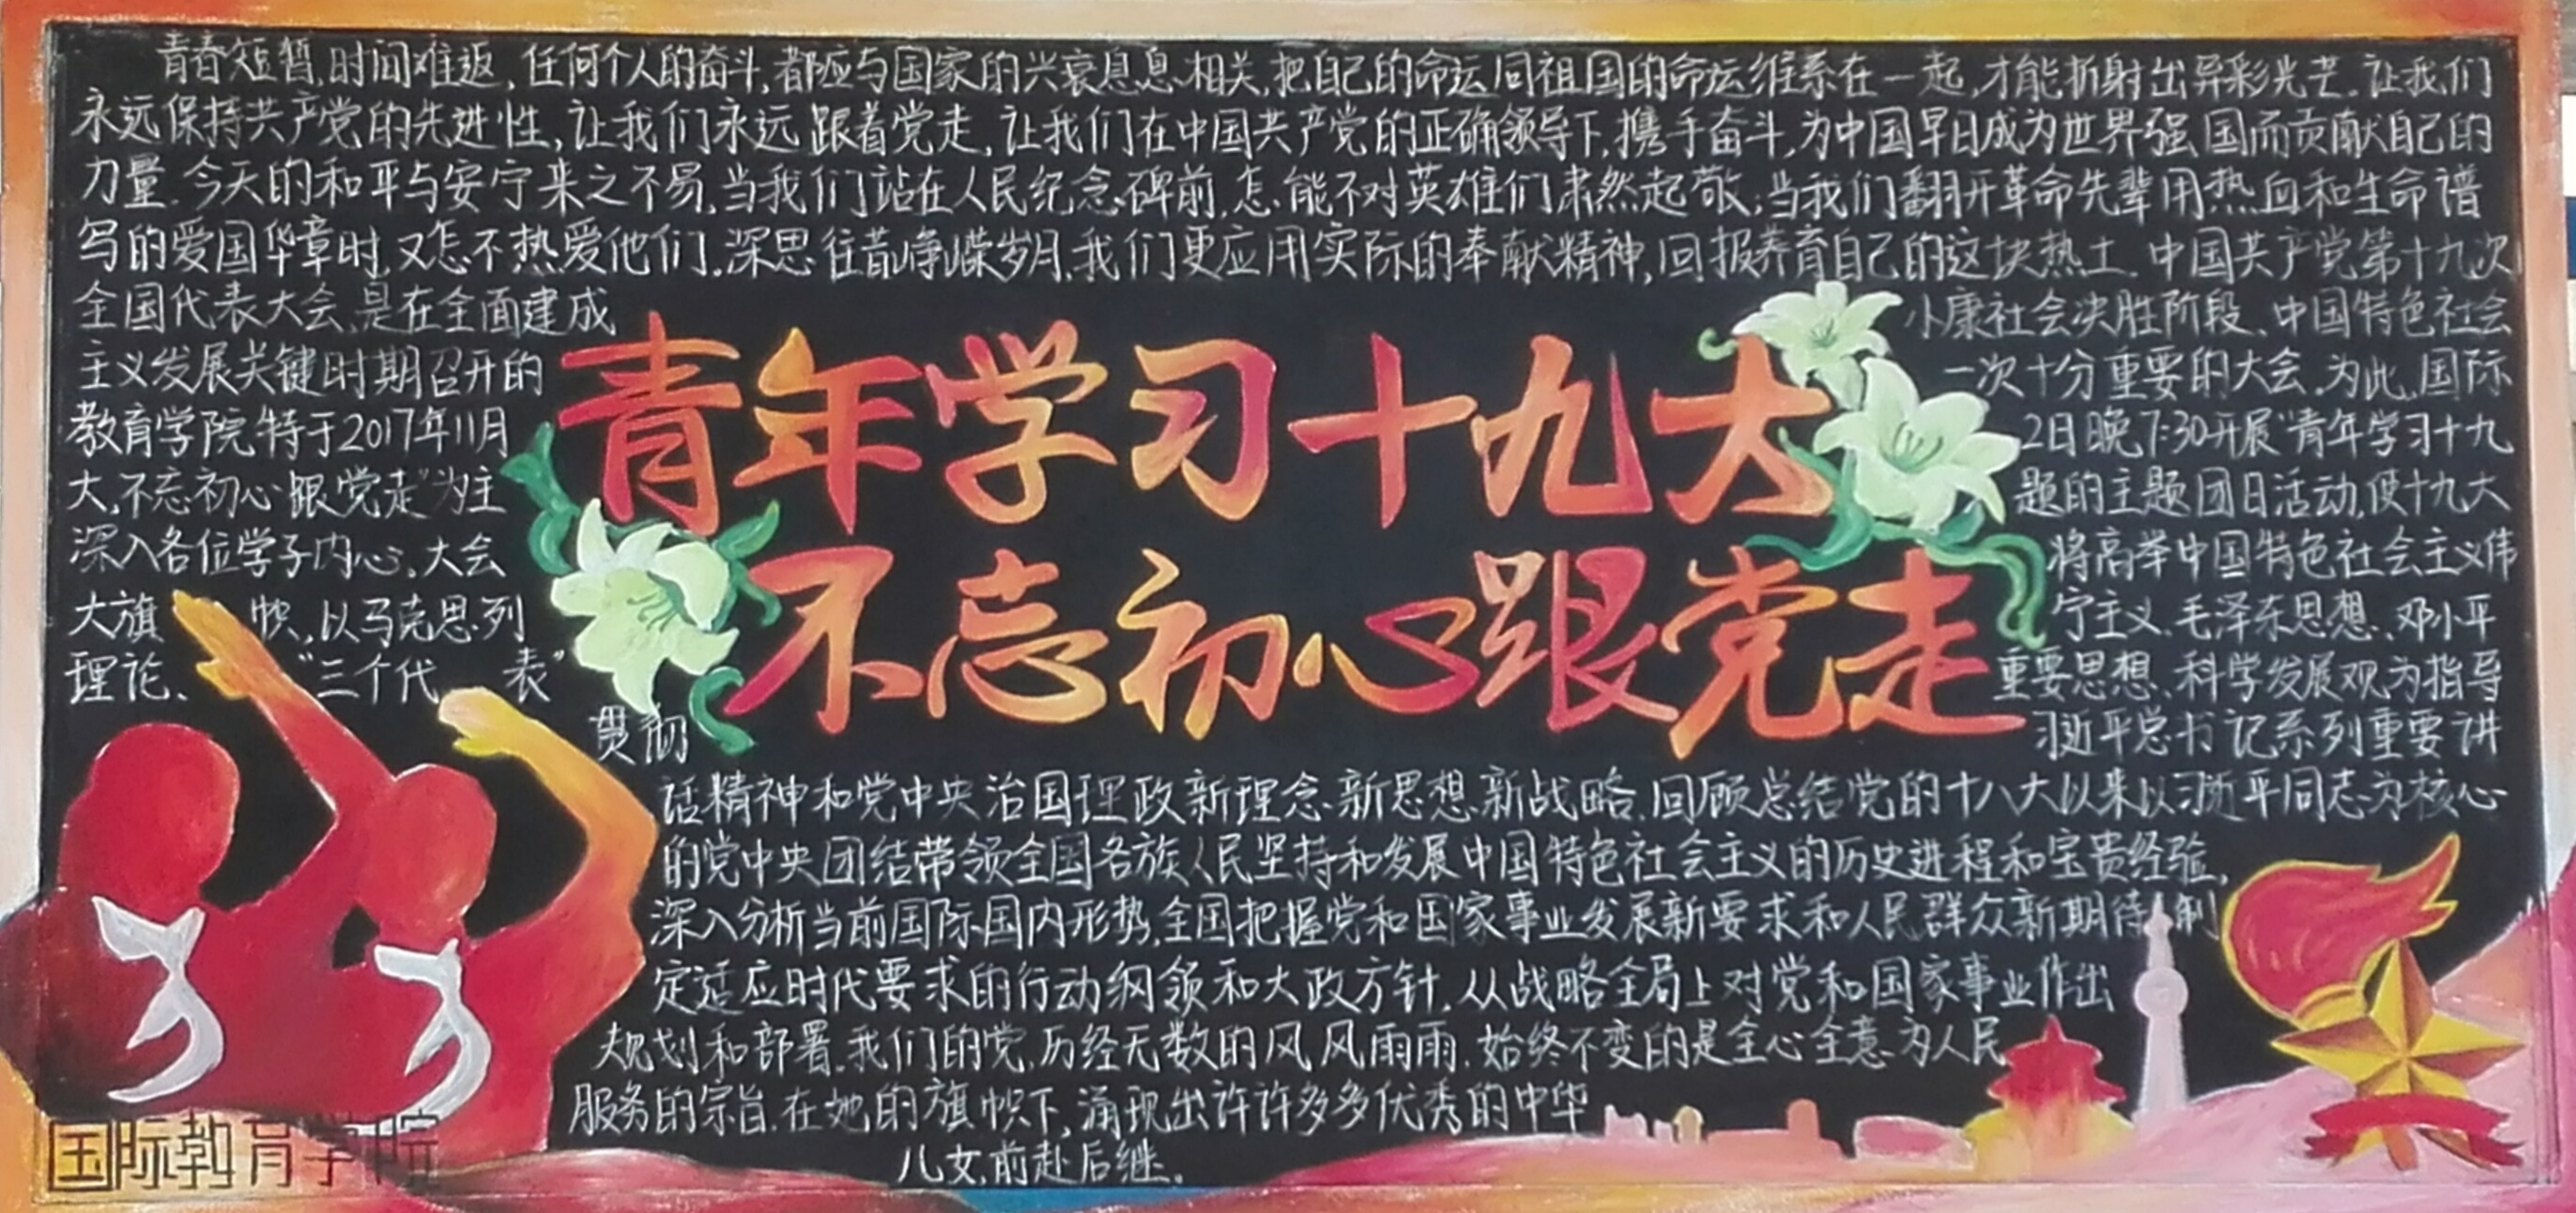 青春短暂,时间难返,任何个人的奋斗,都应与国家的兴衰息息相关,把自己的命运同祖国的命运维系在一起,才能折射出异彩光芒.让我们
永远保持共产党的先进性,让我们永远跟着党走,让我们在中国共产党的正确领导下,携手奋斗,为中国早日成为世界强国而贡献自己的
力量.今天的和平与安宁来之不易,当我们站在人民纪念碑前,怎能不对英雄们肃然起敬;当我们翻开革命先辈用热血和生命谱
写的爱国华章时,又怎不热爱他们.深思往昔峥嵘岁月,我们更应用实际的奉献精神,回报养育自己的这块热土.中国共产党第十九次
全国代表大会,是在全面建成小康社会决胜阶段、中国特色社会
主义发展关键时期召开的一次十分重要的大会.为此,国际
教育学院特于2017年11月2日晚7:30开展“青年学习十九
大,不忘初心跟党走”为主题的主题团日活动,使十九大
深入各位学子内心。大会将高举中国特色社会主义伟
大旗帜,以马克思列宁主义、毛泽东思想、邓小平
理论、“三个代表”重要思想、科学发展观为指导
贯彻习近平总书记系列重要讲
话精神和党中央治国理政新理念新思想新战略.回顾总结党的十八大以来以习近平同志为核心
的党中央团结带领全国各族人民坚持和发展中国特色社会主义的历史进程和宝贵经验,
深入分析当前国际国内形势,全国把握党和国家事业发展新要求和人民群众新期待,制
定适应时代要求的行动纲领和大政方针.从战略全局上对党和国家事业作出
规划和部署.我们的党,历经无数的风风雨雨.始终不变的是全心全意为人民
服务的宗旨.在她的旗帜下,涌现出许许多多优秀的中华
儿女,前赴后继。
青年学习十九大
不忘初心跟党走
国际教育学院